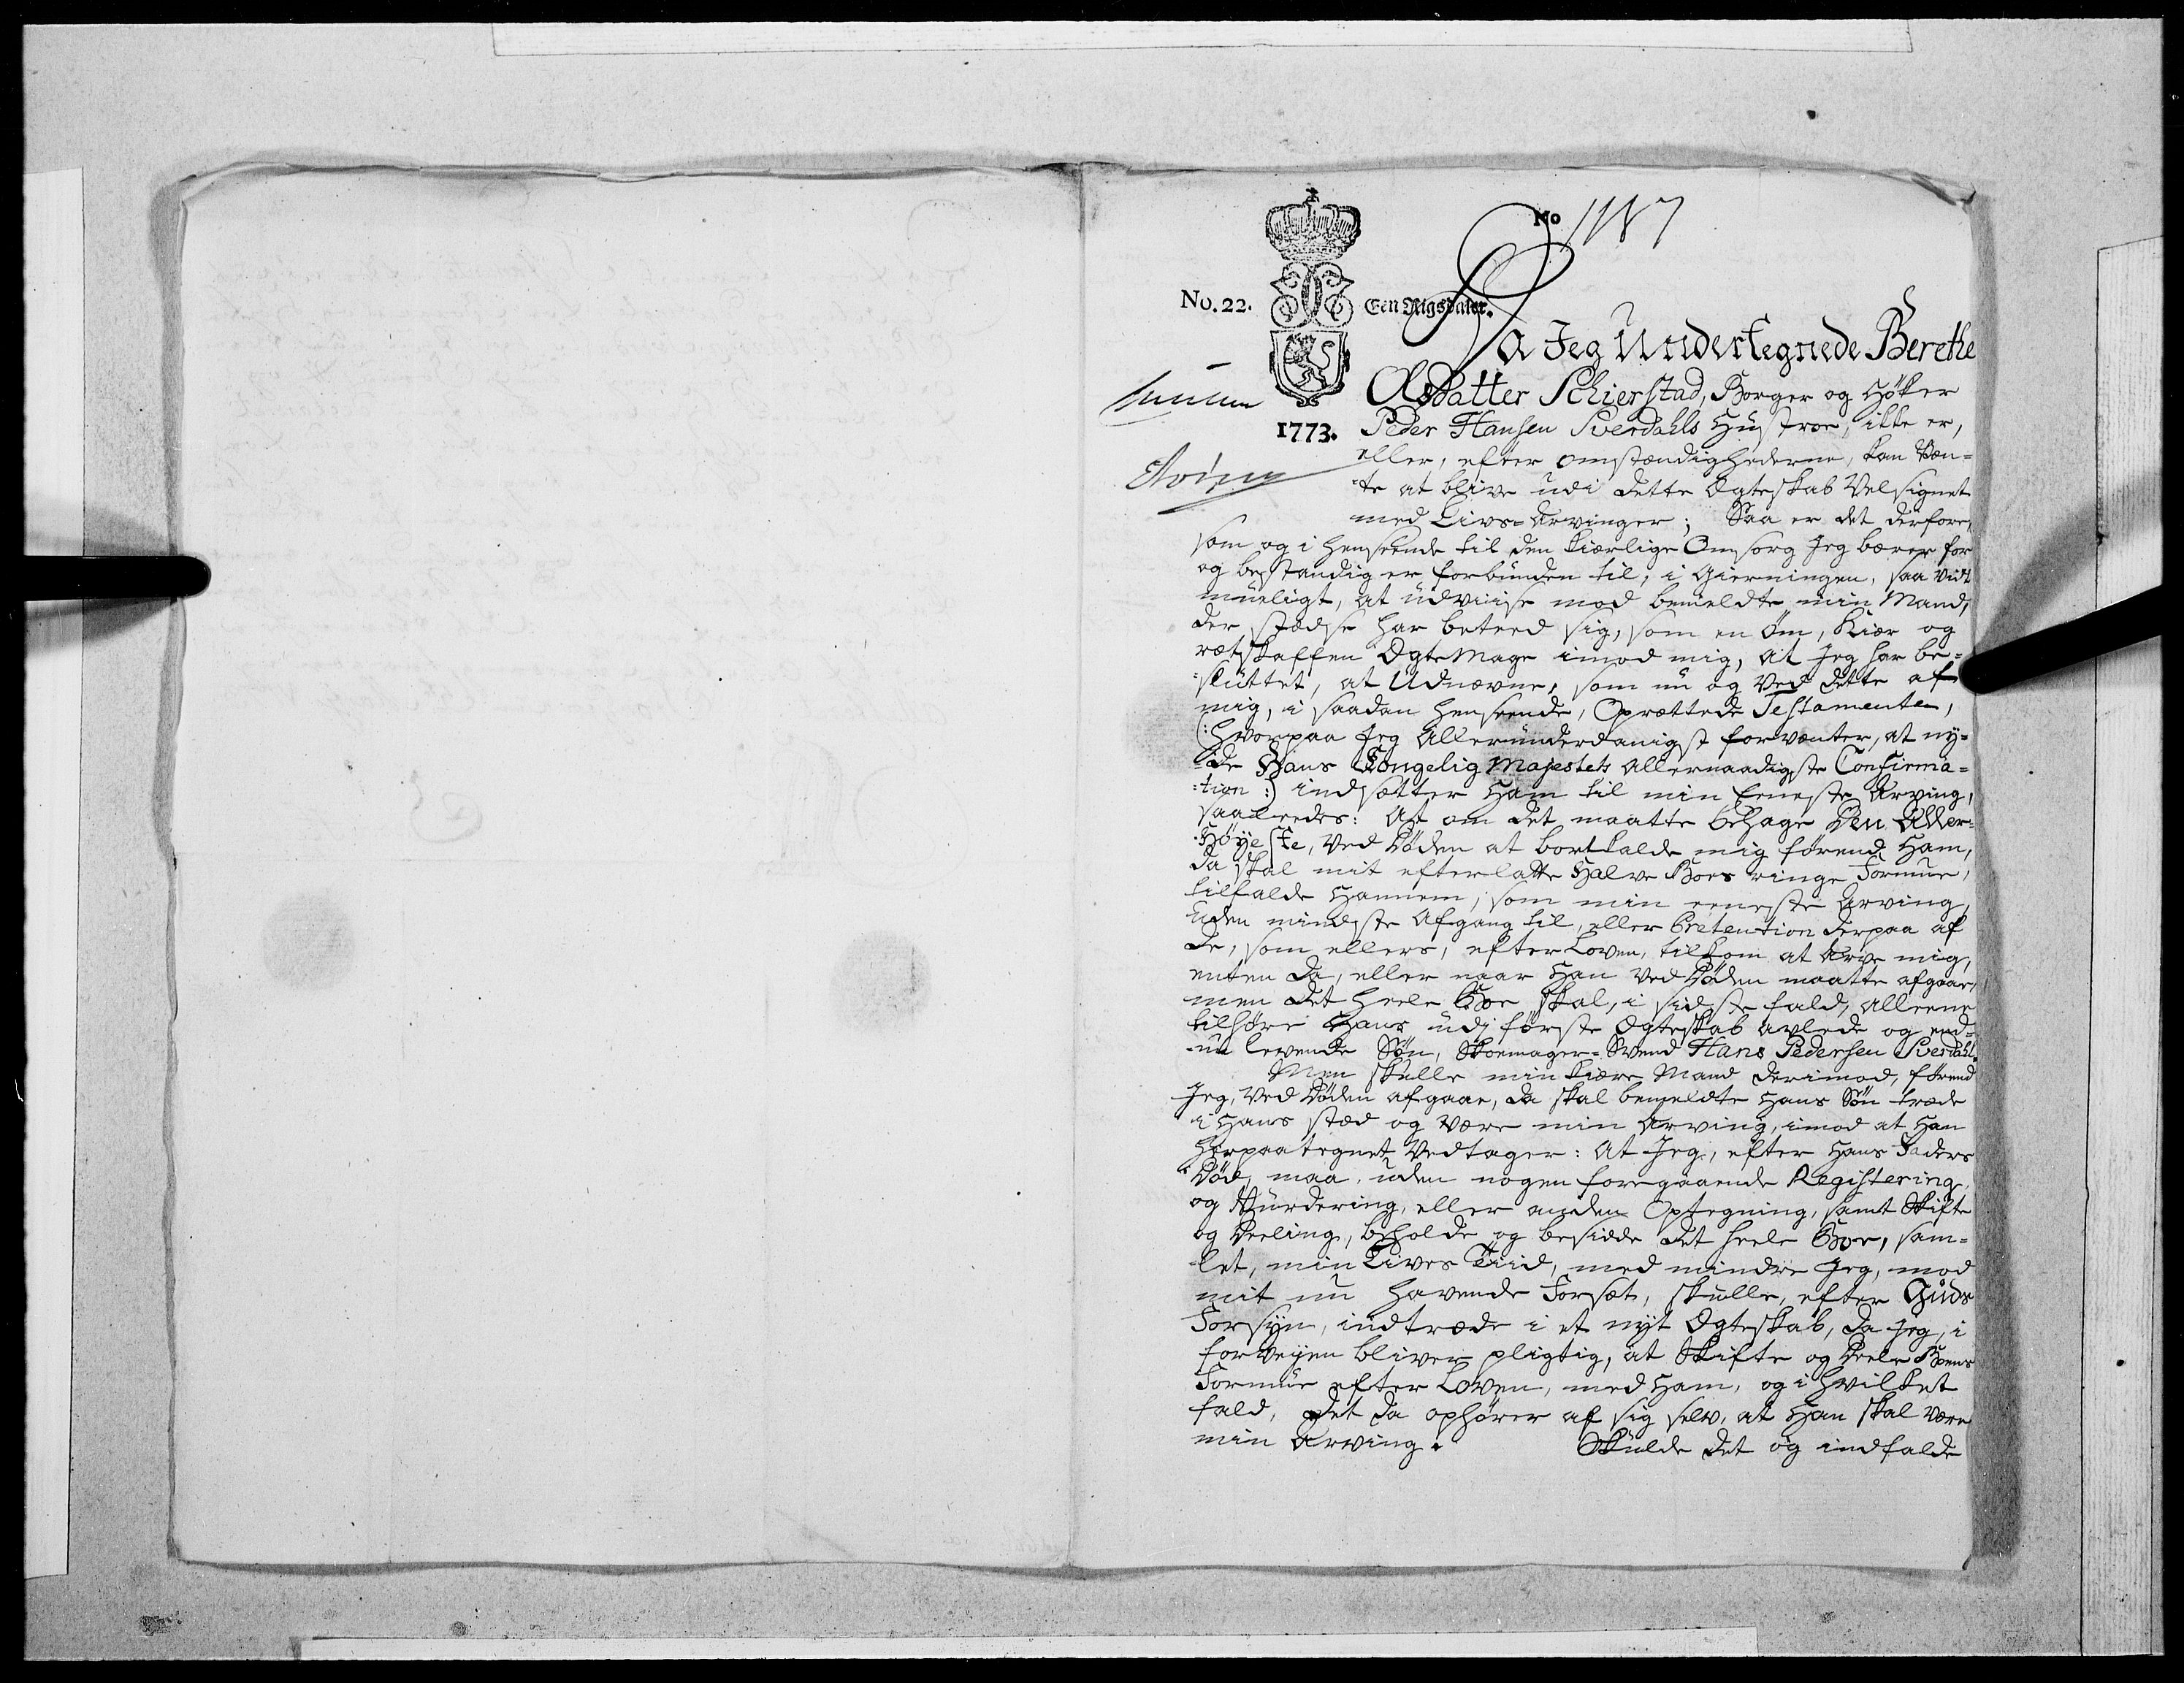 No 1187
No. 22. Een Rigsdaler.
1773.
Da Jeg Undertegnede Berethe
Olsdatter Schierstad, Borger og Høker
Peder Hansen Sverdahls Hustroe, ikke er,
eller, efter omstændighederne, kan ven-
-te at blive udi dette Ægteskab Velsignet
med Livs-Arvinger; Saa er det derfore,
som og i henseende til den kiærlige Omsorg Jeg bærer for
og bestandig er forbunden til, i Gierningen, saa vidt
mueligt, at udviise mod bemeldte min Mand,
der stædse har beteed sig, som en øm, kiær og
retskaffen Ægtemage imod mig, at Jeg har be-
-sluttet, at Udnævne, som nu og ved dette af
mig, i saadan henseende, Oprettede Testamente,
(: hvorpaa Jeg Allerunderdanigst forventer, at ny-
-de Hans Kongelig Majestets Allernaadigste Confirma-
-tion :) indsætter Ham til min Eeneste Arving,
saaleedes: At om det maatte behage Den Aller-
Høyeste, ved Døden at bortkalde mig førend Ham,
da skal mit efterladte Halve Boes ringe Formue,
tilfalde Hannem, som min eeneste Arving,
uden mindste Afgang til, eller Prætention derpaa af
de, som ellers, efter Loven, tilkom at Arve mig,
enten da, eller naar Han ved Døden maatte afgaae,
men det heele Boe skal, i sidste fald, alleene
tilhøre Hans udi første Ægteskab avlede og end-
-nu levende Søn, Skoemager-Svend Hans Pedersen Sverdahl.
Men skulle min kiære Mand derimod, førend
Jeg, ved Døden afgaae, da skal bemeldte Hans Søn træde
i Hans stæd og være min Arving, imod at Han
herpaategnet Vedtager: At Jeg, efter Hans Faders
Død, maa, uden nogen foregaaende Registering
og Vurdering, eller anden Optegning, samt Skifte
og Deeling, beholde og besidde det heele Boe, sam-
-let, min Lives Tiid, med mindre Jeg, mod
mit nu havende Forsæt, skulle, efter Guds
Forsyn, indtræde i et nyt Ægteskab, da Jeg, i
forveyen bliver pligtig, at Skifte og Deele Boens
Formue efter Loven, med Ham, og i hvilket
fald, det da ophører af sig selv, at Han skal være
min Arving. Skulde det og indfalde